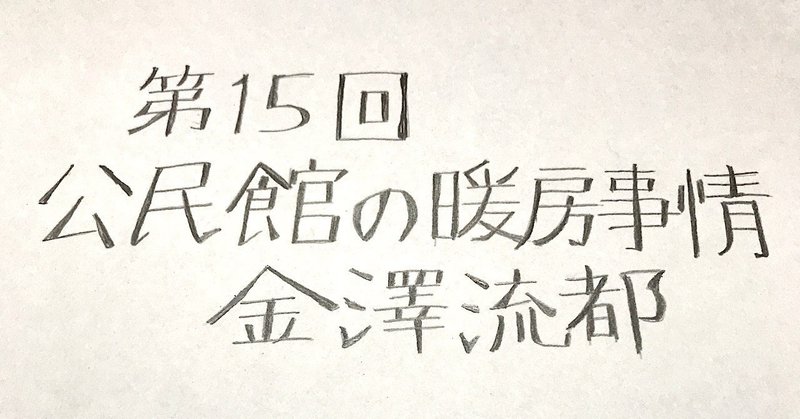 第15回
公民館の暖房事情
金澤流都